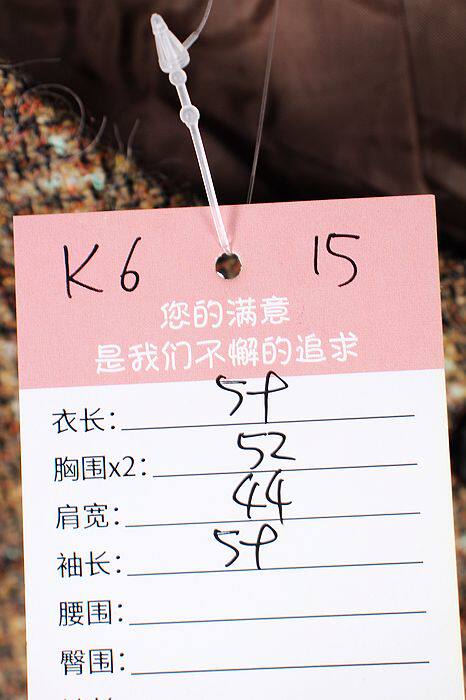 K6 15
您的满意
是我们不懈的追求
衣长: 59
胸围x2: 52
肩宽: 44
袖长: 59
腰围:
臀围: